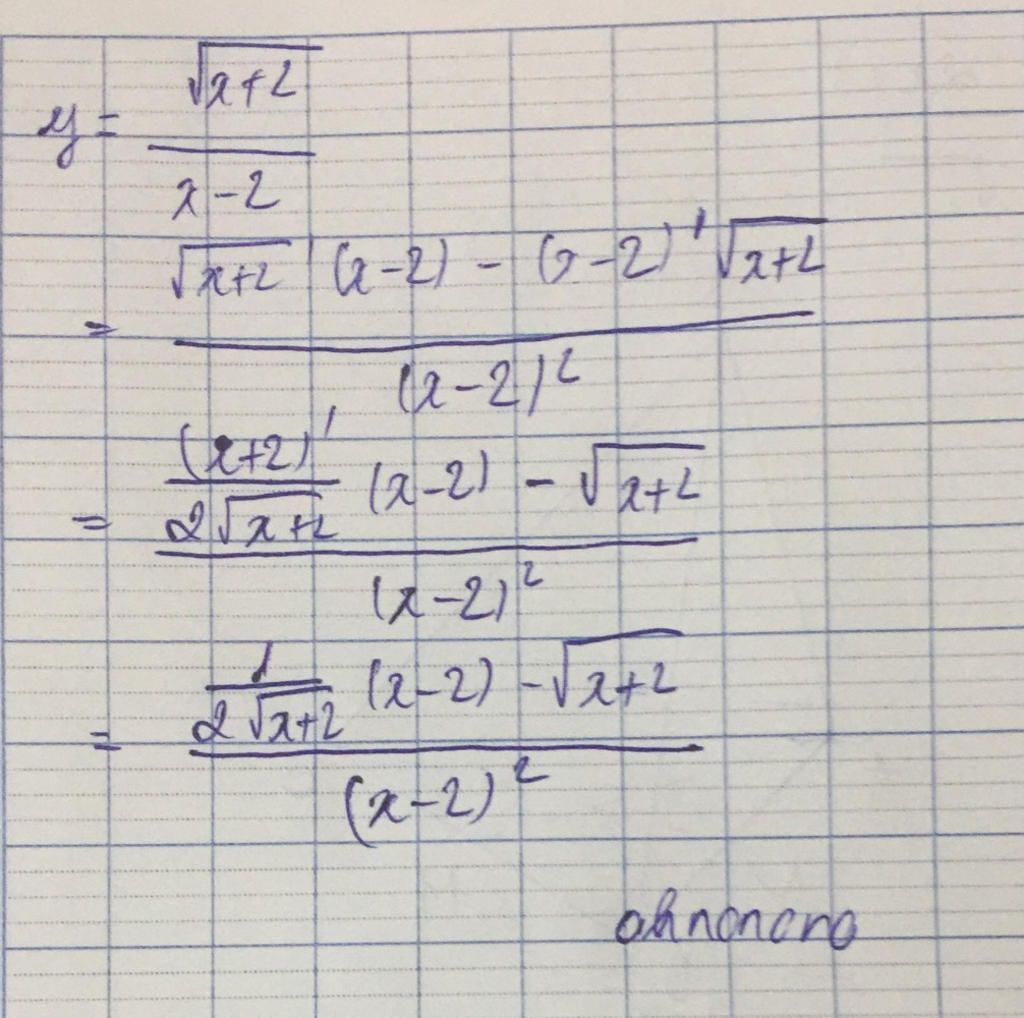 y = \frac{\sqrt{x+2}}{x-2}
= \frac{\sqrt{x+2}' (x-2) - (x-2)' \sqrt{x+2}}{(x-2)^2}
= \frac{\frac{(x+2)'}{2\sqrt{x+2}} (x-2) - \sqrt{x+2}}{(x-2)^2}
= \frac{\frac{1}{2\sqrt{x+2}} (x-2) - \sqrt{x+2}}{(x-2)^2}